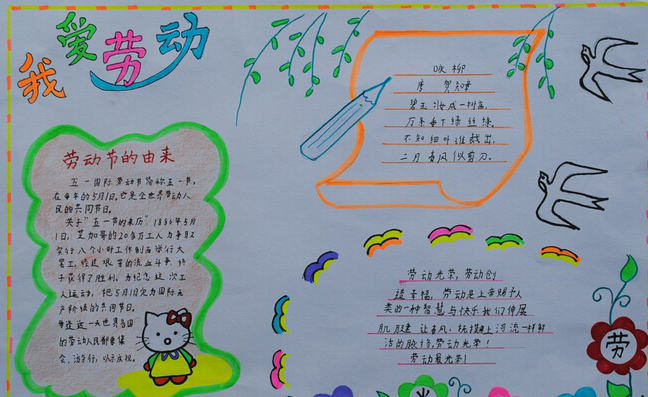 我爱劳动
劳动节的由来
五一国际劳动节简称五一节,
在每年的5月1日,它是全世界劳动人
民的共同节日。
关于"五一节的来历"1886年5月
1日,芝加哥的20多万工人为争取
实行八个小时工作制而举行大
罢工,经过艰苦的流血斗争,终
于获得了胜利。为纪念这次工
人运动,把5月1日定为国际无
产阶级的共同节日。
每逢这一天世界各国
的劳动人民都要集
会、游行,以示庆祝。
咏柳
唐 贺知章
碧玉妆成一树高,
万条垂下绿丝绦。
不知细叶谁裁出,
二月春风似剪刀。
劳动光荣,劳动创
造幸福,劳动是上帝赐予人
类的一种智慧与快乐我们伸展
肌肤 让春风,抚摸
洁的脉络,劳动光荣!
劳动最光荣!
劳